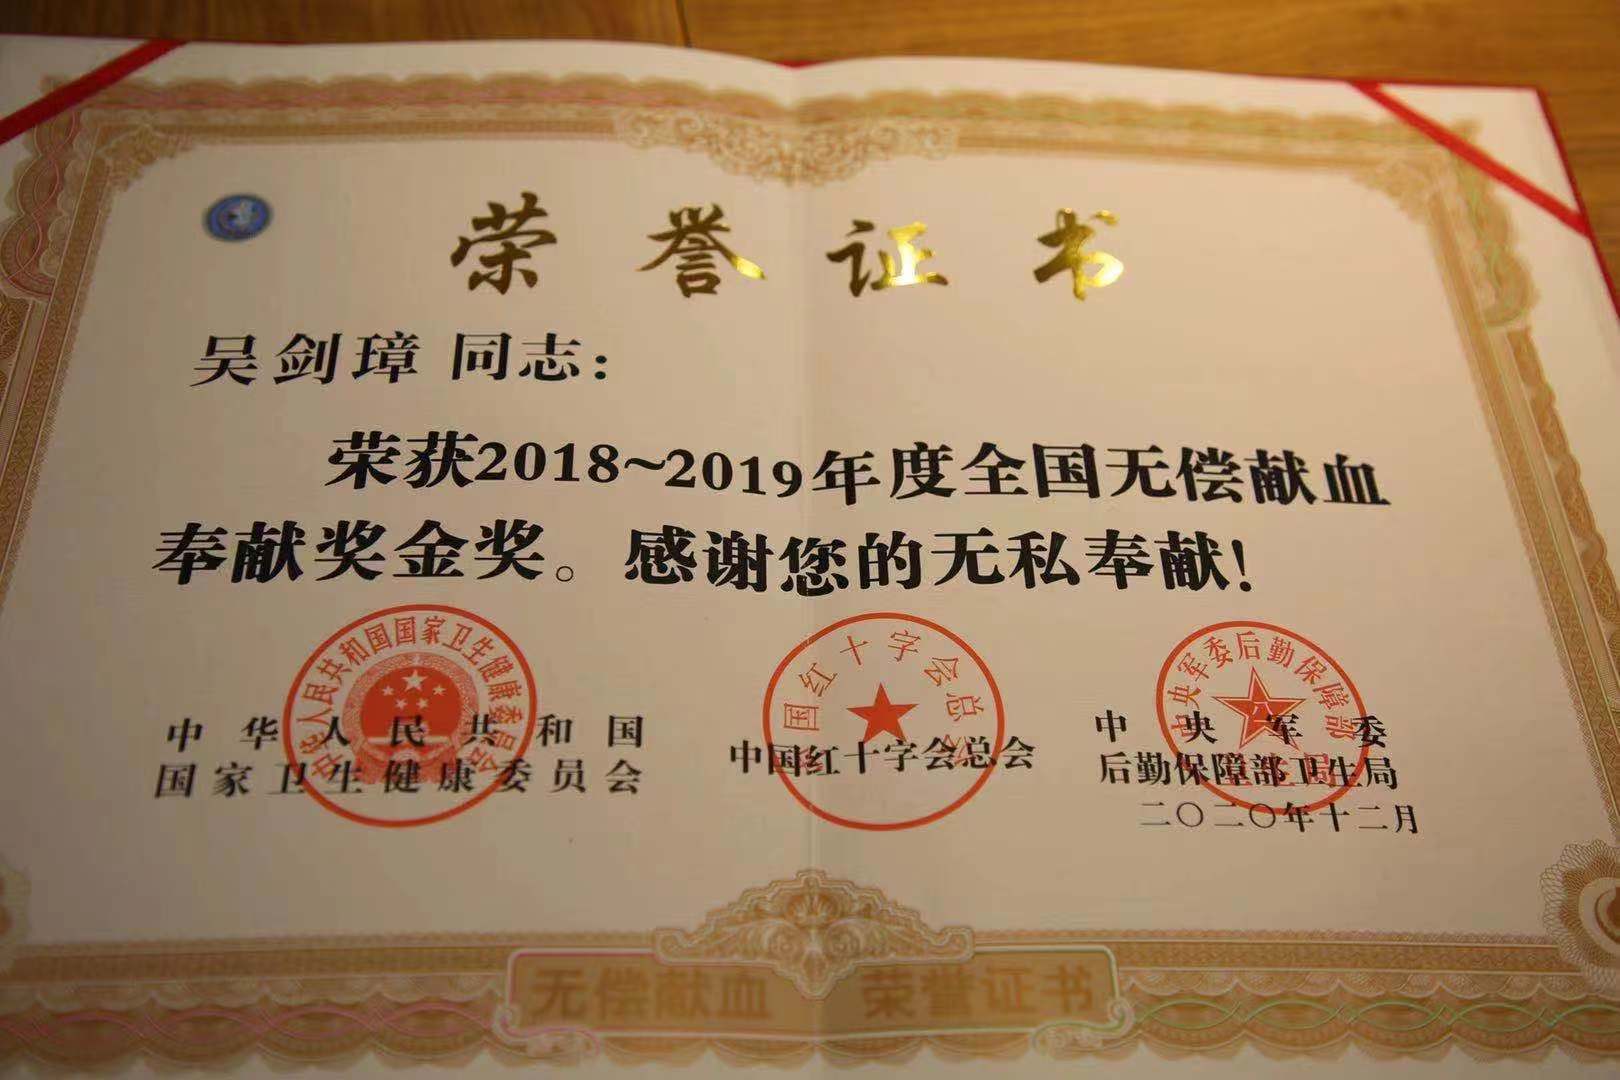 荣誉证书
吴剑璋 同志：
荣获2018~2019年度全国无偿献血
奉献奖金奖。感谢您的无私奉献！
中华人民共和国国家卫生健康委员会
中华人民共和国
国家卫生健康委员会
中国红十字会总会
中国红十字会总会
中央军委后勤保障部
中央军委
后勤保障部卫生局
二〇二〇年十二月
无偿献血 荣誉证书